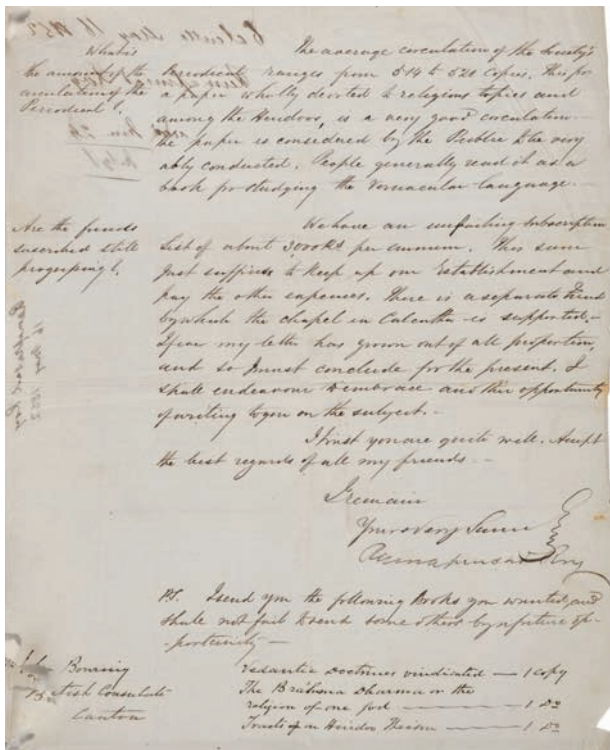 What is
the amount of the
circulation of the
Periodical?
The average circulation of the Society's
Periodical ranges from 514 to 520 Copies. This for
a paper wholly devoted to religious topics and
among the Hindoos, is a very good circulation
the paper is considered by the Public to be very
ably conducted. People generally read it as a
book for studying the vernacular language. —
Are the funds
suscribed still
progressing?
We have an unfailing subscription
list of about 3,000 Rs per annum. This sum
just suffices to keep up our Establishment and
pay the other expenses. There is a separate Fund
by which the chapel in Calcutta is supported. —
I fear my letter has grown out of all proportion,
and so I must conclude for the present. I
shall endeavour to embrace another opportunity
of writing to you on the subject. —
I trust you are quite well. Accept
the best regards of all my friends —
I remain
Yours very Sincerely
Ramapersad Roy
P.S. I send you the following Books you wanted, and
shall not fail to send some others by a future op-
-portunity —
John Bowring
British Consulate
Canton
Vedantic Doctrines vindicated — 1 Copy
The Brahma Dharma or the
religion of one god — 1 Do
Tracts on Hindoo Theism — 1 Do